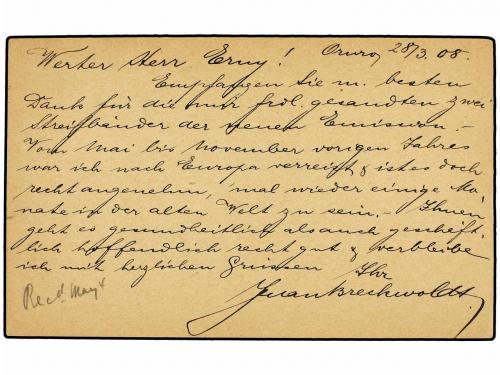 Oruro, 28/3. 08.
Werter Herr Erny!
Empfangen Sie m. besten
Dank für die mir frdl. gesandten zwei
Streifbänder der neuen Emission. -
Vom Mai bis November vorigen Jahres
war ich nach Europa verreist & ist es doch
recht angenehm, 'mal wieder einige Mo-
nate in der alten Welt zu sein. - Ihnen
geht es gesundheitlich als auch geschäft-
lich hoffendlich recht gut & verbleibe
ich mit herzlichen Grüssen Ihr
Juan Breckwoldt.
Recd. May 4